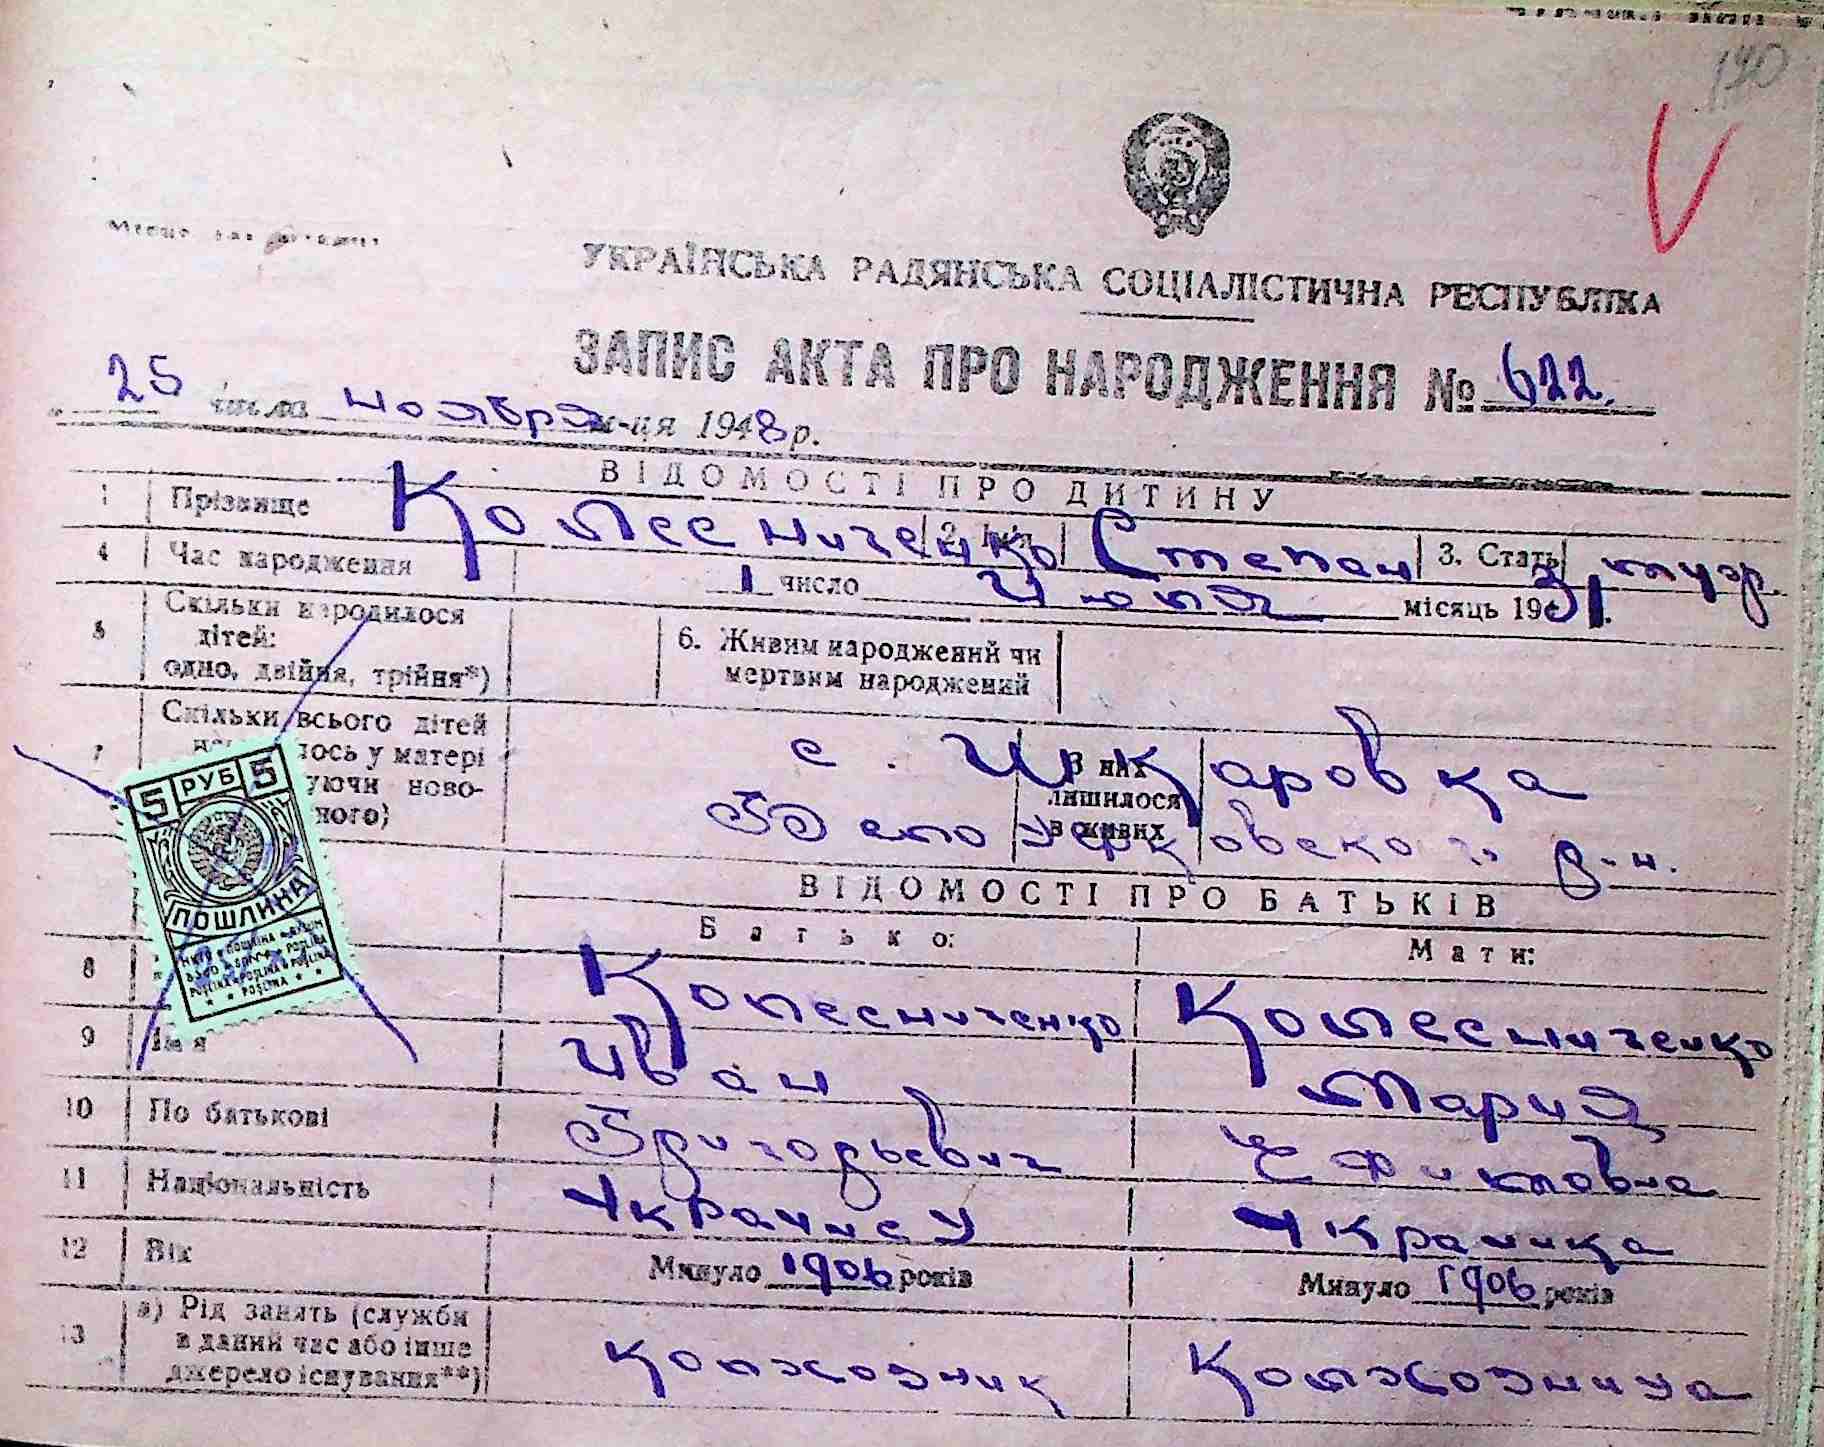 190
УКРАЇНСЬКА РАДЯНСЬКА СОЦІАЛІСТИЧНА РЕСПУБЛІКА
ЗАПИС АКТА ПРО НАРОДЖЕННЯ № 622.
25 числа ноября м-ця 1948 р.
ВІДОМОСТІ ПРО ДИТИНУ
1 Прізвище Колесниченко 2. Ім'я Степан 3. Стать муж.
4 Час народження 1 число Июля місяць 1931.
5 Скільки народилося
дітей:
одно, двійня, трійня*)
6. Живим народжений чи
мертвим народжений
7 Скільки всього дітей
лось у матері
уючи ново-
ного)
З них
лишилося
в живих
с. Шкаровка
Белоцерковского р-н.
5 РУБ 5
ПОШЛИНА
ВІДОМОСТІ ПРО БАТЬКІВ
Батько: Мати:
8 Колесниченко Колесниченко
9 Ім'я Иван Мария
10 По батькові Григорьевич Ефимовна
11 Національність Украинец Украинка
12 Вік Минуло 1906 років Минуло 1906 років
13 а) Рід занять (служби
в даний час або інше
джерело існування**)
Колхозник Колхозница